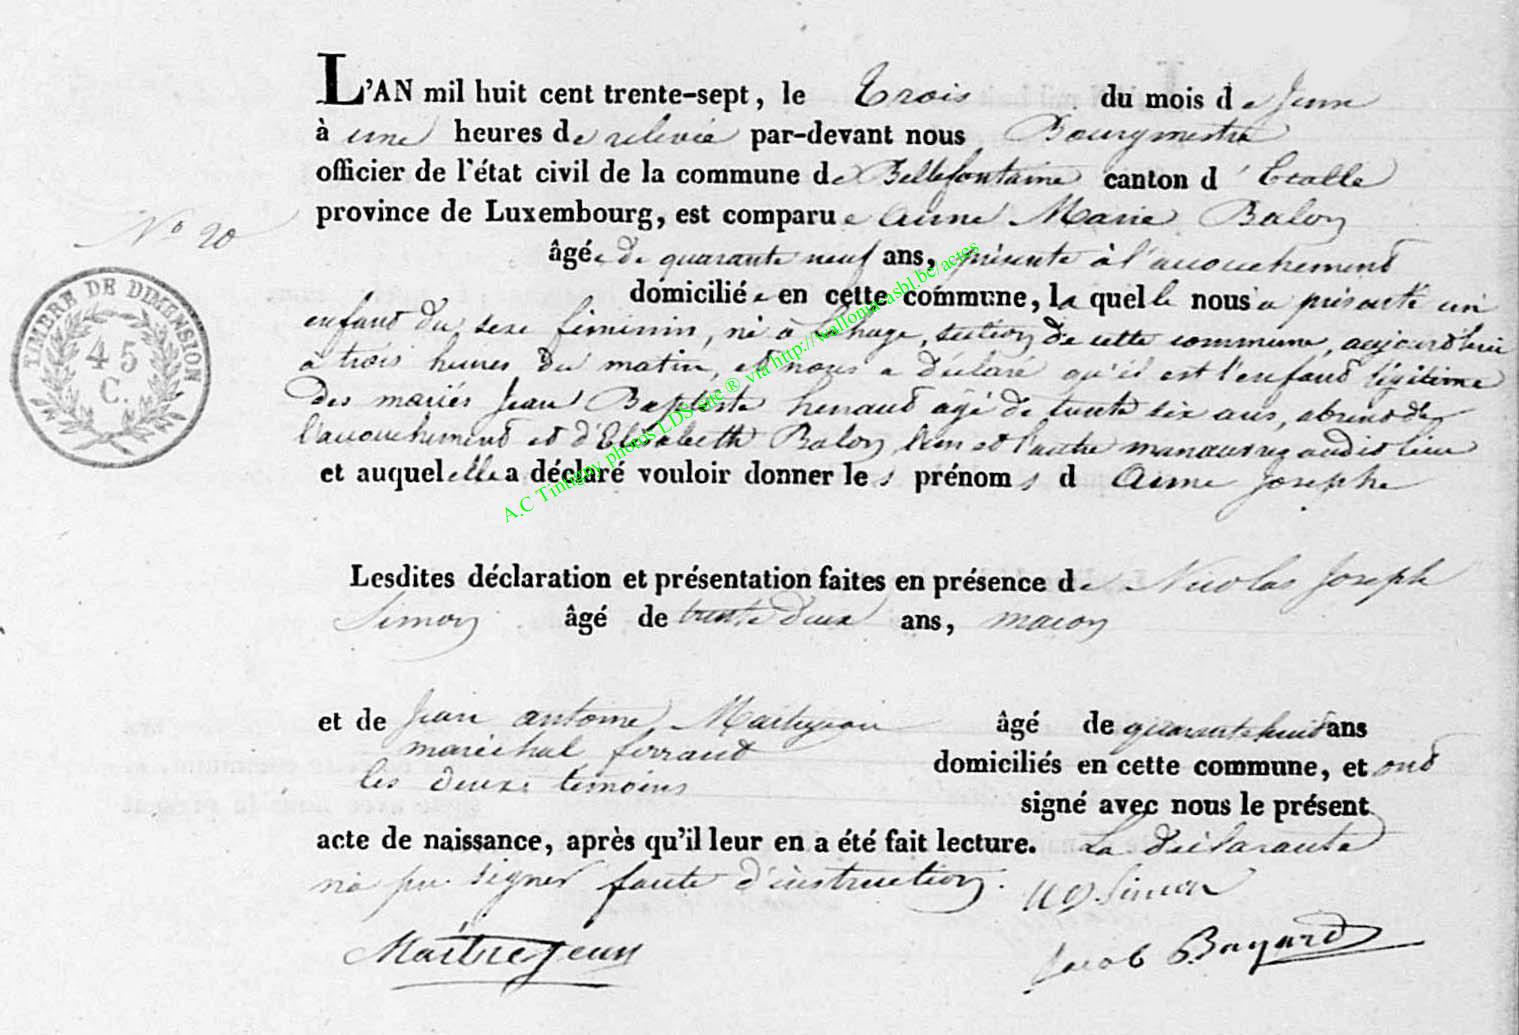 L'AN mil huit cent trente-sept, le Trois du mois de Juin
à une heures de relevée par-devant nous Bourgmestre
officier de l'état civil de la commune de Bellefontaine canton d'Etalle
province de Luxembourg, est comparue Anne Marie Balon
N° 20
âgée de quarante neuf ans, présente à l'accouchement
domiciliée en cette commune, laquelle nous a présenté un
enfant du sexe féminin, né à Lahage, section de cette commune, aujourd'hui
à trois heures du matin, et nous a déclaré qu'il est l'enfant légitime
des mariés Jean Baptiste henaut âgé de trente six ans, absent de
l'accouchement et d'Elisabeth Balon l'un et l'autre manœuvres audit lieu
et auquel elle a déclaré vouloir donner les prénoms d Anne Josephe
TIMBRE DE DIMENSION
45
C.
A.C Tintigny photos LDS site ® via http://wallonia-asbl.be/actes
Lesdites déclaration et présentation faites en présence de Nicolas Joseph
Simon âgé de trente deux ans, macon
et de Jean antoine âgé de quarante huit ans
maréchal ferrant domiciliés en cette commune, et ont
les deux temoins signé avec nous le présent
acte de naissance, après qu'il leur en a été fait lecture. La déclarante
n'a pu signer faute d'instruction. Simon
Maitrejean Jacob Bayard